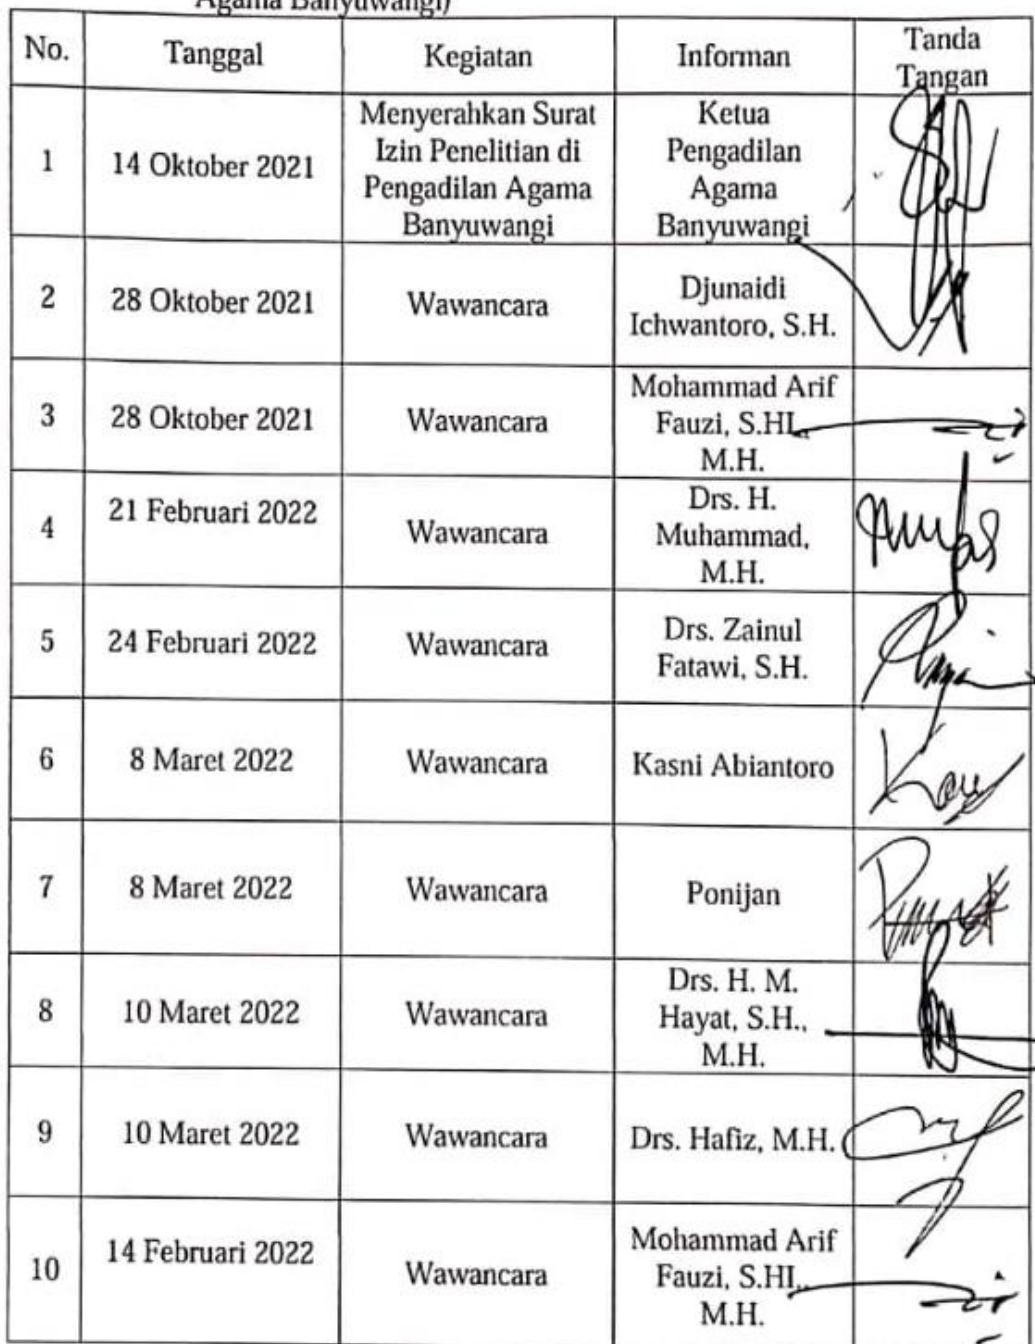 Agama Banyuwangi)
No. Tanggal Kegiatan Informan Tanda
Tangan
1 14 Oktober 2021 Menyerahkan Surat
Izin Penelitian di
Pengadilan Agama
Banyuwangi Ketua
Pengadilan
Agama
Banyuwangi
2 28 Oktober 2021 Wawancara Djunaidi
Ichwantoro, S.H.
3 28 Oktober 2021 Wawancara Mohammad Arif
Fauzi, S.HI.,
M.H.
4 21 Februari 2022 Wawancara Drs. H.
Muhammad,
M.H.
5 24 Februari 2022 Wawancara Drs. Zainul
Fatawi, S.H.
6 8 Maret 2022 Wawancara Kasni Abiantoro
7 8 Maret 2022 Wawancara Ponijan
8 10 Maret 2022 Wawancara Drs. H. M.
Hayat, S.H.,
M.H.
9 10 Maret 2022 Wawancara Drs. Hafiz, M.H.
10 14 Februari 2022 Wawancara Mohammad Arif
Fauzi, S.HI.,
M.H.